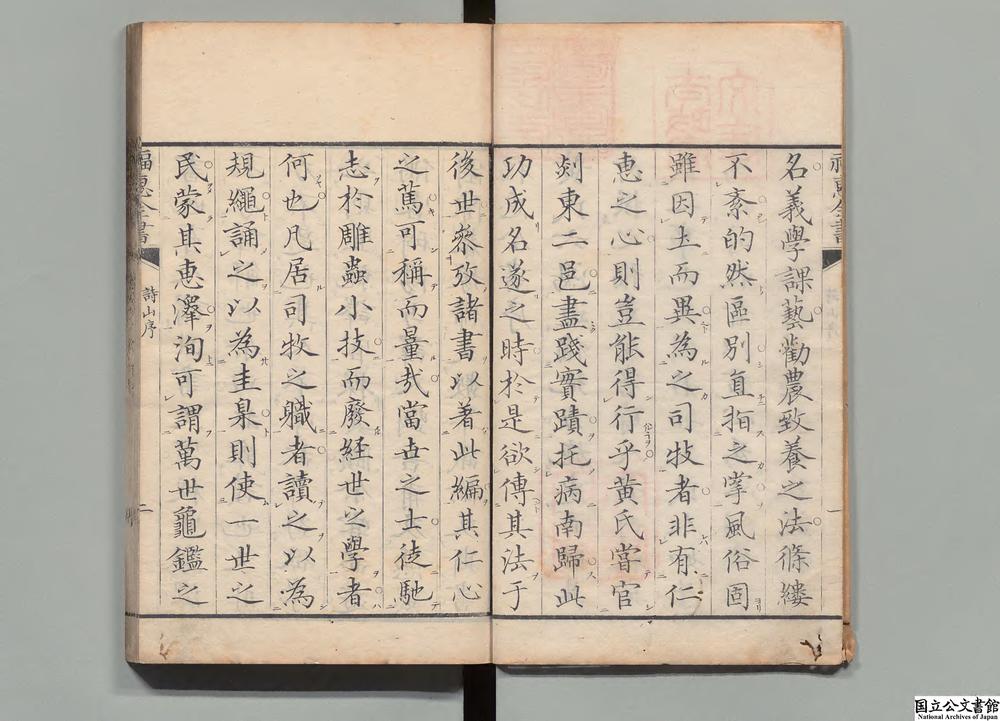 名義學課藝勸農致養之法條縷
不紊的然區別直指之掌風俗固
雖因土而異為之司牧者非有仁
惠之心則豈能得行乎黄氏甞官
郯東二邑盡踐實蹟托病南歸此
功成名遂之時於是欲傳其法于
後世叅攷諸書以著此編其仁心
之篤可稱而量哉當世之士徒馳
志於雕蟲小技而廢経世之學者
何也凡居司牧之職者讀之以為
規繩誦之以為圭臬則使一世之
民蒙其惠澤洵可謂萬世龜鑑之
福惠全書
詩山序
二
国立公文書館
National Archives of Japan